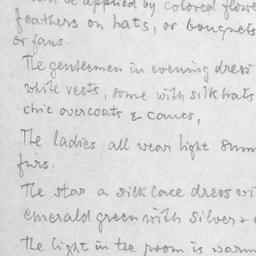 be applied by colored flowe
feathers on hats, or bouquets
or fans.
The gentlemen in evening dress
white vests, some with silk hats
chic overcoats & canes,
The ladies all wear light summ
furs.
The star a silk lace dress wi
emerald green with silver +
The light in the room is warm